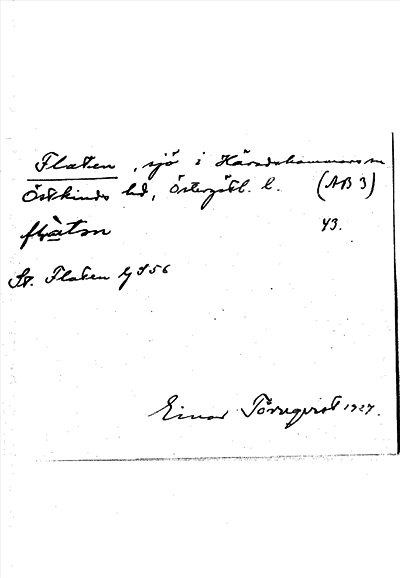 Flaten, sjö i Häradshammars sn
Östkinds hd, Östergötl. l. (AB 3)
43.
St. Flaten Gj S 56
Einar Törnqvist 1927.